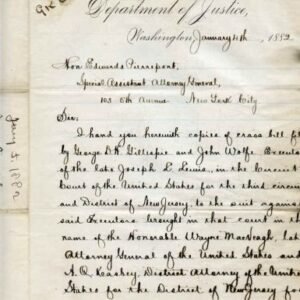 Department of Justice,
Washington, January 4th, 1882
Hon Edwards Pierrepont,
Special Assistant Attorney General,
103 5th Avenue New York City
Sir:
I hand you herewith copies of cross bill fil
by George D. H. Gillespie and John Wolfe Executo
of the late Joseph L. Lewis, in the Circuit
Court of the United States for the third circu
and District of New Jersey, to the suit agains
said Executors brought in that court in the
name of the Honorable Wayne MacVeagh, lat
Attorney General of the United States and
A. Q. Keasbey, District Attorney of the Unite
States for the District of New Jersey fo
Jany 5, 1882